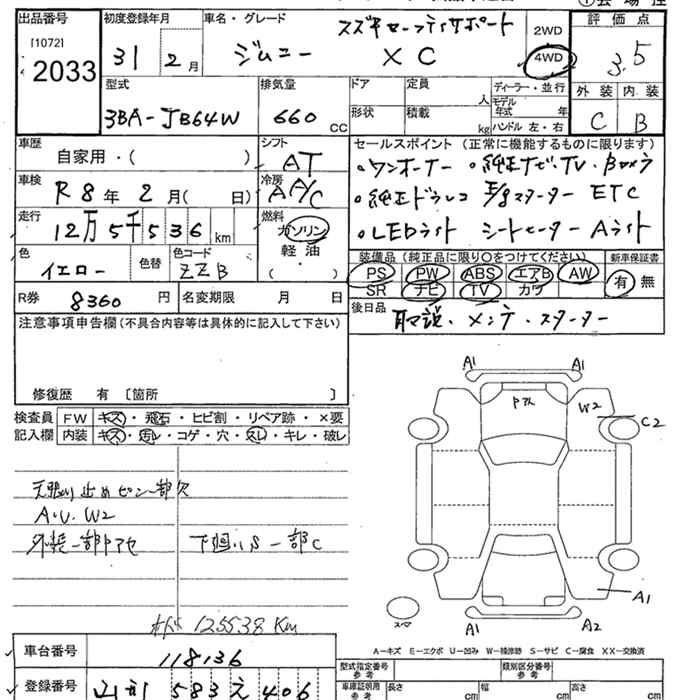 出品番号 [1072] 2033
初度登録年月 31 2月
車名・グレード スズキセーフティサポート ジムニー XC
2WD 4WD
評価点 3.5
外装 内装
C B
型式 3BA-JB64W
排気量 660 CC
ドア 定員 人
形状 積載 kg
ディーラー・並行
モデル年式 年
ハンドル 左・右
車歴 自家用・( )
シフト AT
車検 R8年 2月( 日)
冷房 AA/C
走行 12万5千536 km
燃料 ガソリン 軽油 ( )
色 イエロー 色替
色コード ZZB
R券 8360 円 名変期限 月 日
セールスポイント (正常に機能するものに限ります)
・ワンオーナー ・純正ナビ・TV・Bカメラ
・純正ドラレコ E/gスターター ETC
・LEDライト シートヒーター Aライト
装備品 (純正品に限り○をつけてください) 新車保証書
PS PW ABS エアB AW 有 無
SR ナビ TV カワ
後日品 取説・メンテ・スターター
注意事項申告欄(不具合内容等は具体的に記入して下さい)
修復歴 有 〔箇所 〕
検査員 FW キズ・飛石・ヒビ割・リペア跡・×要
記入欄 内装 キズ・汚レ・コゲ・穴・スレ・キレ・破レ
天張り止めピン一部欠
A・U、W2
外装一部アセ 下廻りS一部C
125538 Km
A1 A1
Pスレ W2 C2
A1
スペア A1 A2
A-キズ E-エクボ U-凹み W-補修跡 S-サビ C-腐食 XX-交換済
車台番号 118136
登録番号 583 え 406
型式指定番号 参考 類別区分番号 参考
車庫証明用 参考 長さ cm 幅 cm 高さ cm